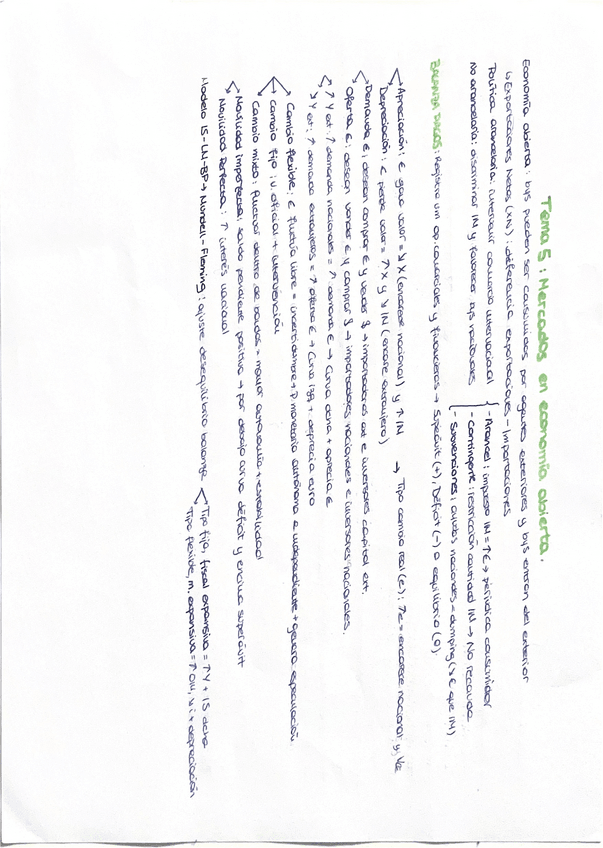 Tema 5: Mercados en economía abierta.
Economía abierta: bys pueden ser consumidos por agentes exteriores y bys entran del exterior
↳ Exportaciones Netas (XN): diferencia exportaciones - importaciones
Política arancelaria: interrumpir comercio internacional { - Arancel: impuesto IN = ↑€ → perjudica consumidor
No arancelaria: discriminar IN y favorecer bys nacionales - Contingente: restricción cantidad IN → No recauda
- Subvenciones: ayudas nacionales = dumping (↓€ que IN)
BALANZA PAGOS: Registra um op. comerciales y financieros → Superávit (+), Déficit (-) o equilibrio (0).
Apreciación: € gana valor = ↓X (encarece nacional) y ↑IN → Tipo cambio real (ε): ↑ε = encarece nacional y ↓
Depreciación: € pierde valor = ↑X y ↓IN (encarece extranjero)
Demanda €: desean comprar € y vender $ → importadores ext e inversores capital ext.
Oferta €: desean vender € y comprar $ → importadores nacionales e inversores nacionales.
↑Y ext: ↑ demanda nacionales = ↑ demanda € → Curva dcha + aprecia €
↓Y ext: ↑ demanda extranjeros = ↑ oferta € → Curva izq + deprecia euro
Cambio flexible: € fluctúa libre = incertidumbre + P monetaria autónoma e independiente + genera especulación.
Cambio fijo: v. oficial + intervención
Cambio mixto: fluctuar dentro de bandas = mayor autonomía + estabilidad
Movilidad imperfecta: saldo pendiente positiva → por debajo curva déficit y encima superávit
Movilidad Perfecta: ↑ interés nacional
Modelo IS-LM-BP → Mundell-Fleming: ajuste desequilibrio balanza Tipo fijo, fiscal expansiva = ↑Y + IS dcha
Tipo flexible, m. expansiva = ↑OM, ↓i + depreciación